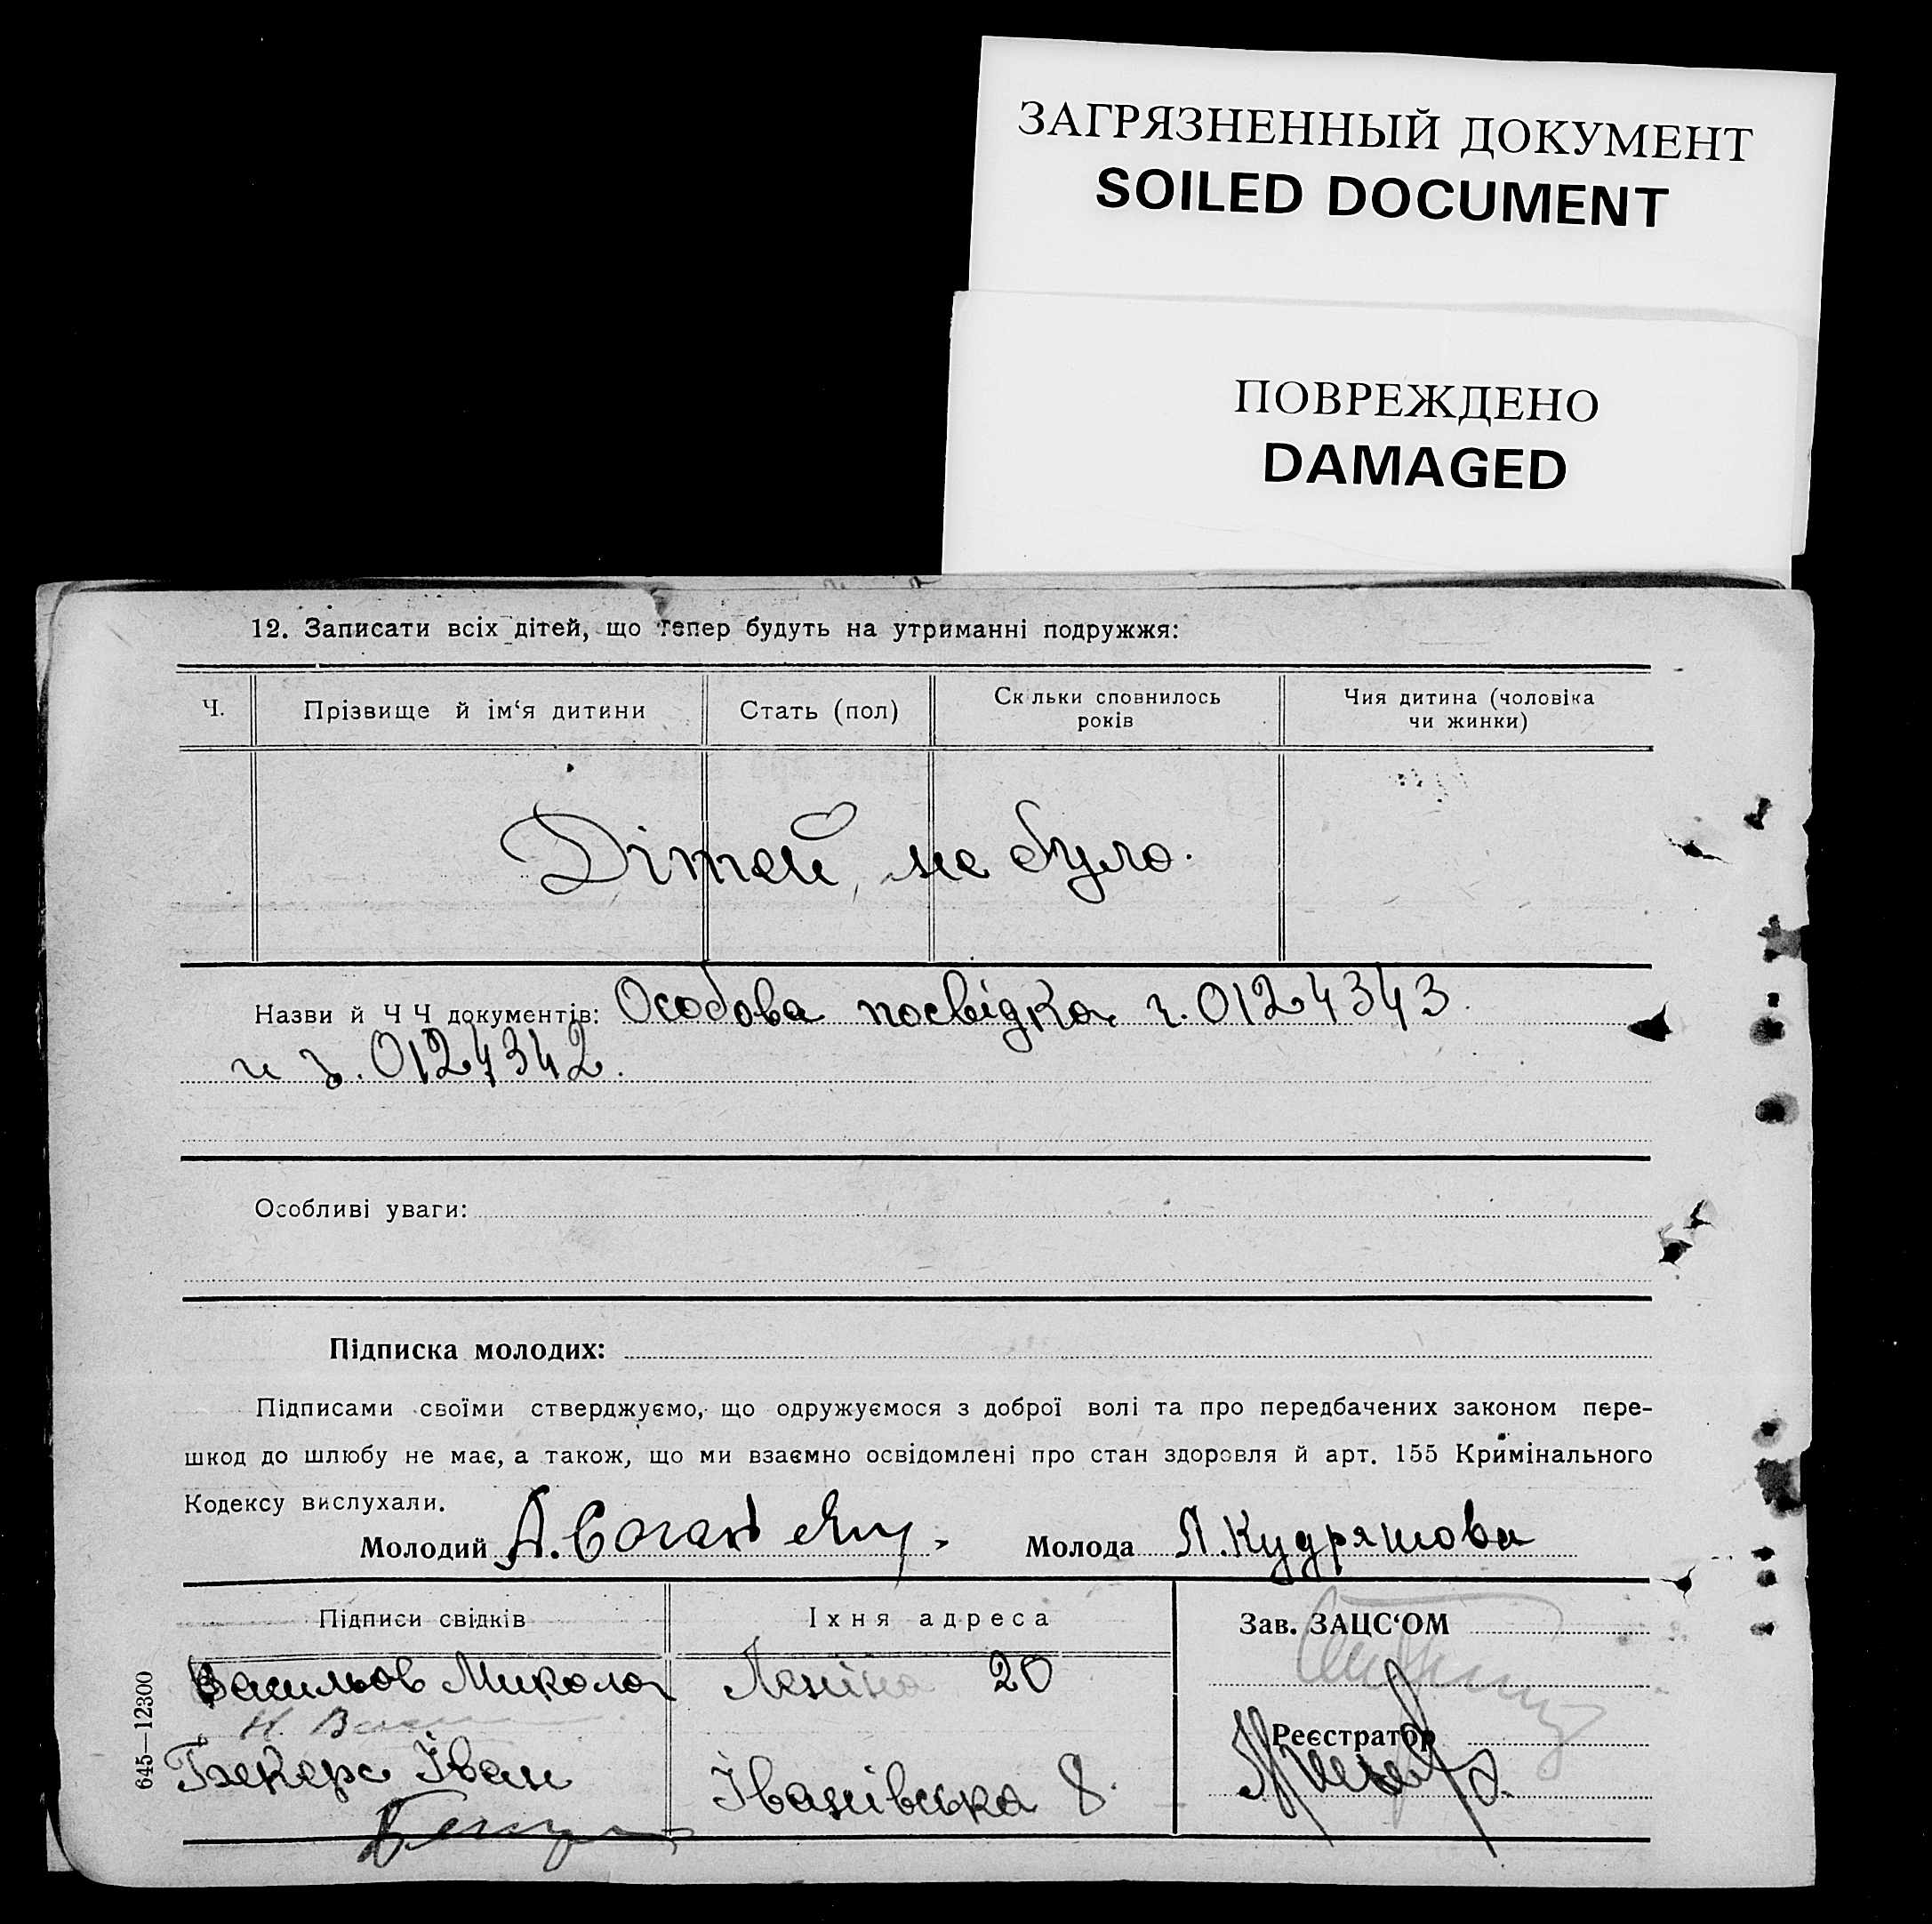 ЗАГРЯЗНЕННЫЙ ДОКУМЕНТ
SOILED DOCUMENT
ПОВРЕЖДЕНО
DAMAGED
12. Записати всіх дітей, що тепер будуть на утриманні подружжя:
Ч. Прізвище й ім‘я дитини Стать (пол) Скільки сповнилось років Чия дитина (чоловіка чи жинки)
Дітей не було.
Назви й Ч Ч документів: Особова посвідка ч. 0124343
и ч. 0124342.
Особливі уваги:
Підписка молодих:
Підписами своїми стверджуємо, що одружуємося з доброї волі та про передбачених законом пере-
шкод до шлюбу не має, а також, що ми взаємно освідомлені про стан здоровля й арт. 155 Кримінального
Кодексу вислухали.
Молодий А. Молода Л. Кудряшова
Підписи свідків Їхня адреса Зав. ЗАЦС‘ОМ
Васильов Микола Леніна 20
Реєстратор
Іван Іванівська 8.
645—12300